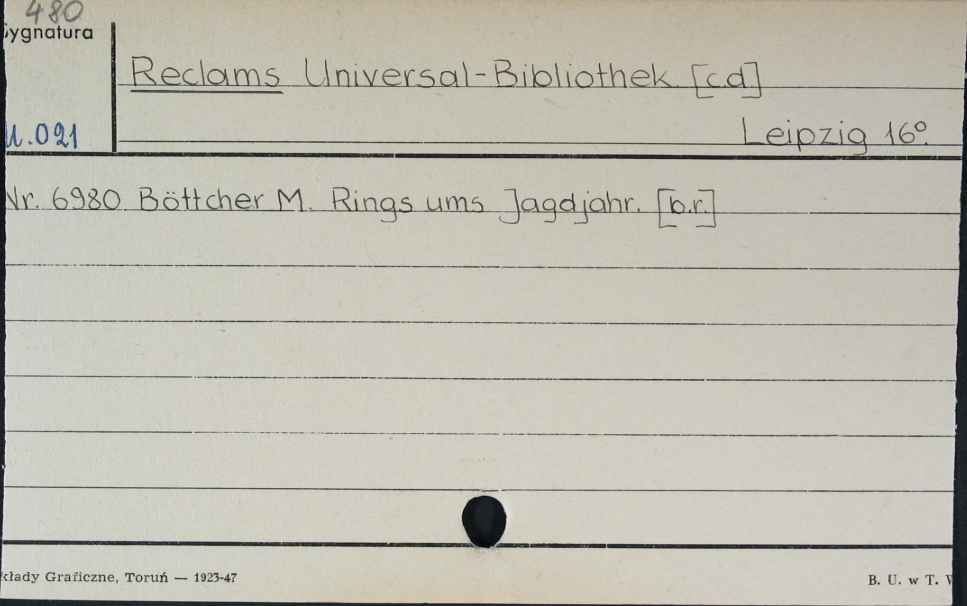 480
Sygnatura
Reclams Universal-Bibliothek. [c.d.]
U.021
Leipzig 16°.
Nr. 6980. Böttcher M. Rings ums Jagdjahr. [b.r.]
kłady Graficzne, Toruń — 1923-47
B. U. w T.